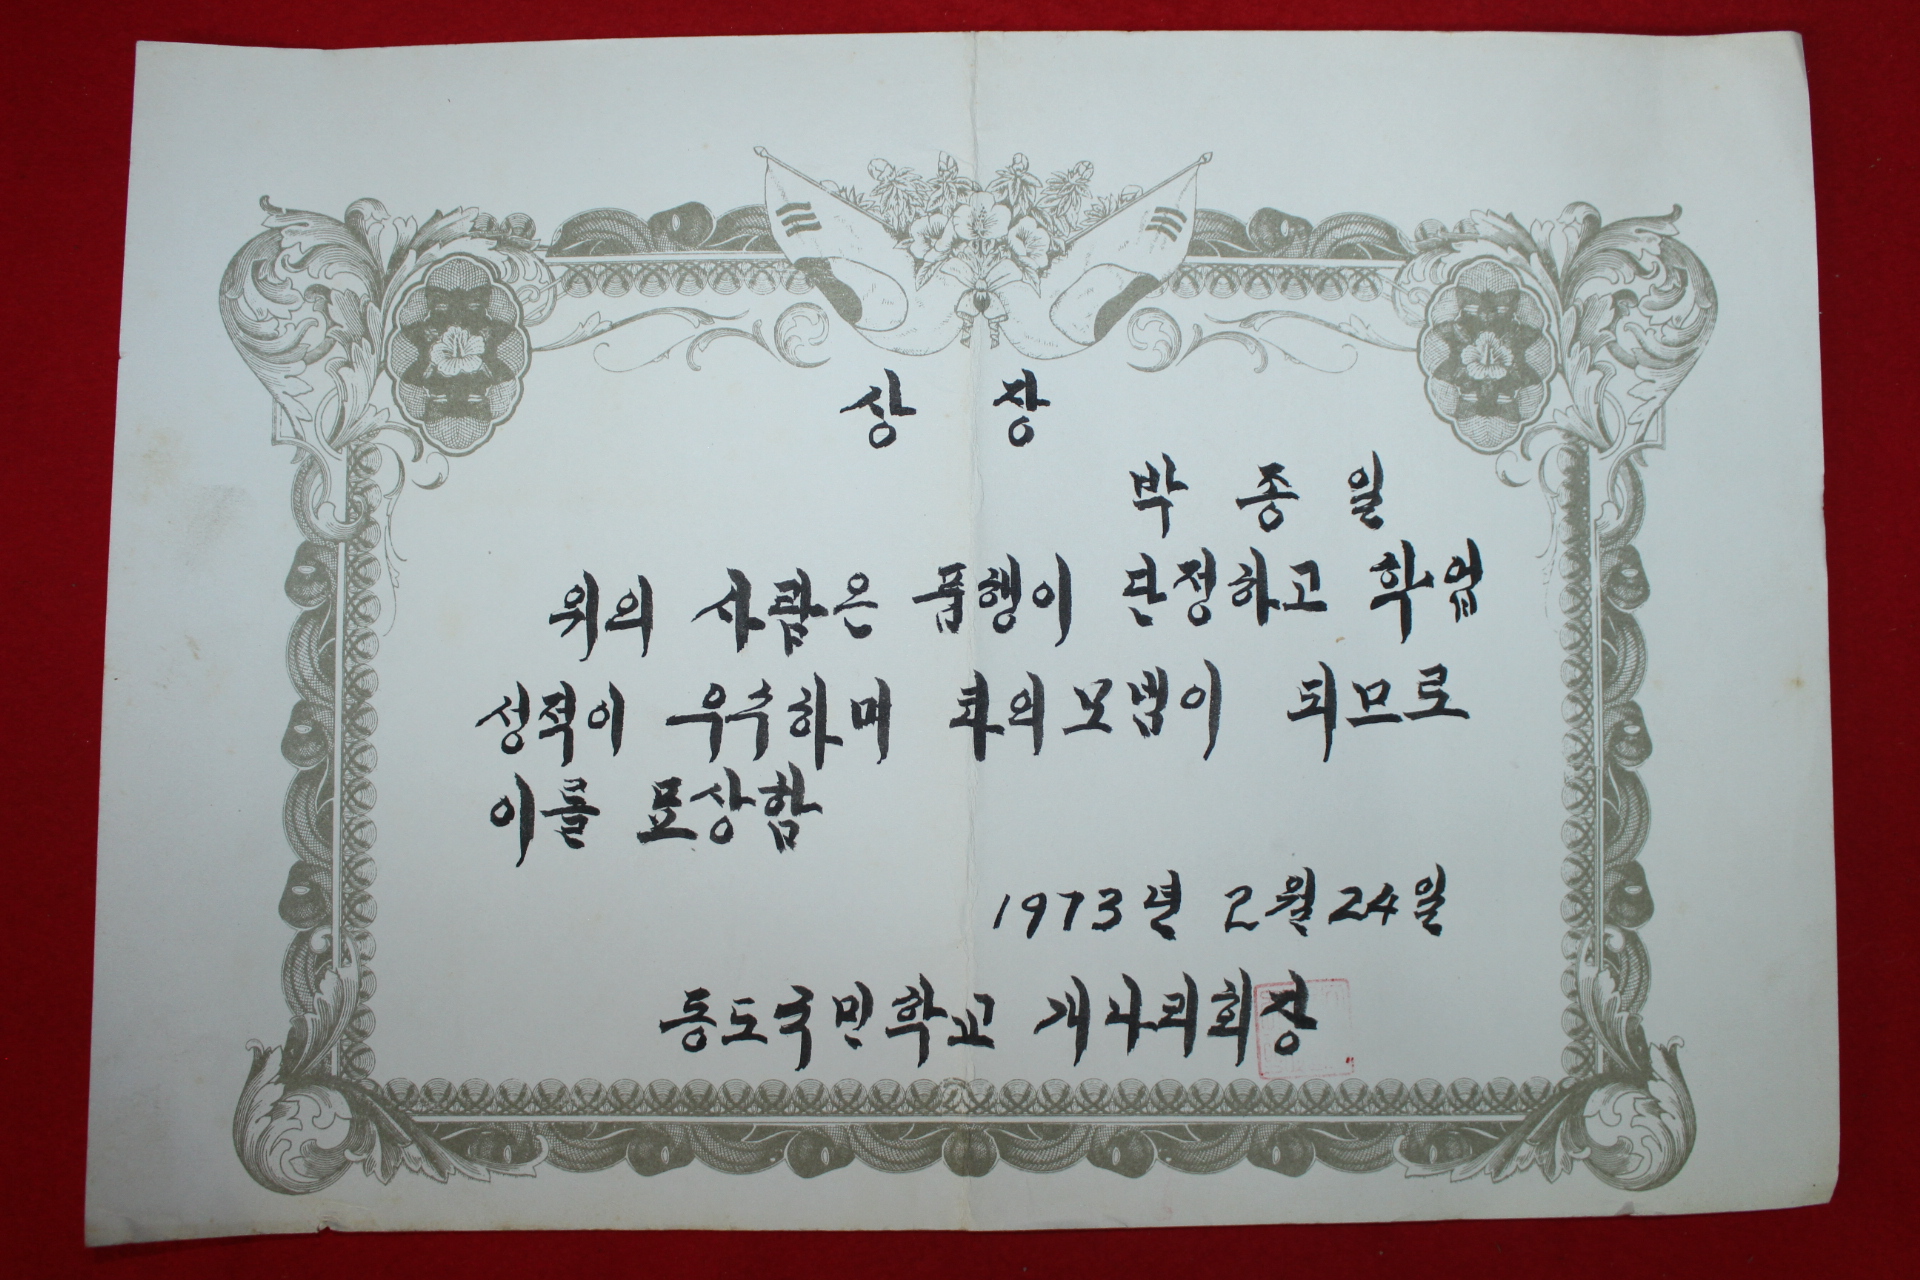 상 장
박 종 일
위의 사람은 품행이 단정하고 학업
성적이 우수하며 타의 모범이 되므로
이를 표상함
1973년 2월 24일
동도국민학교 기사회장